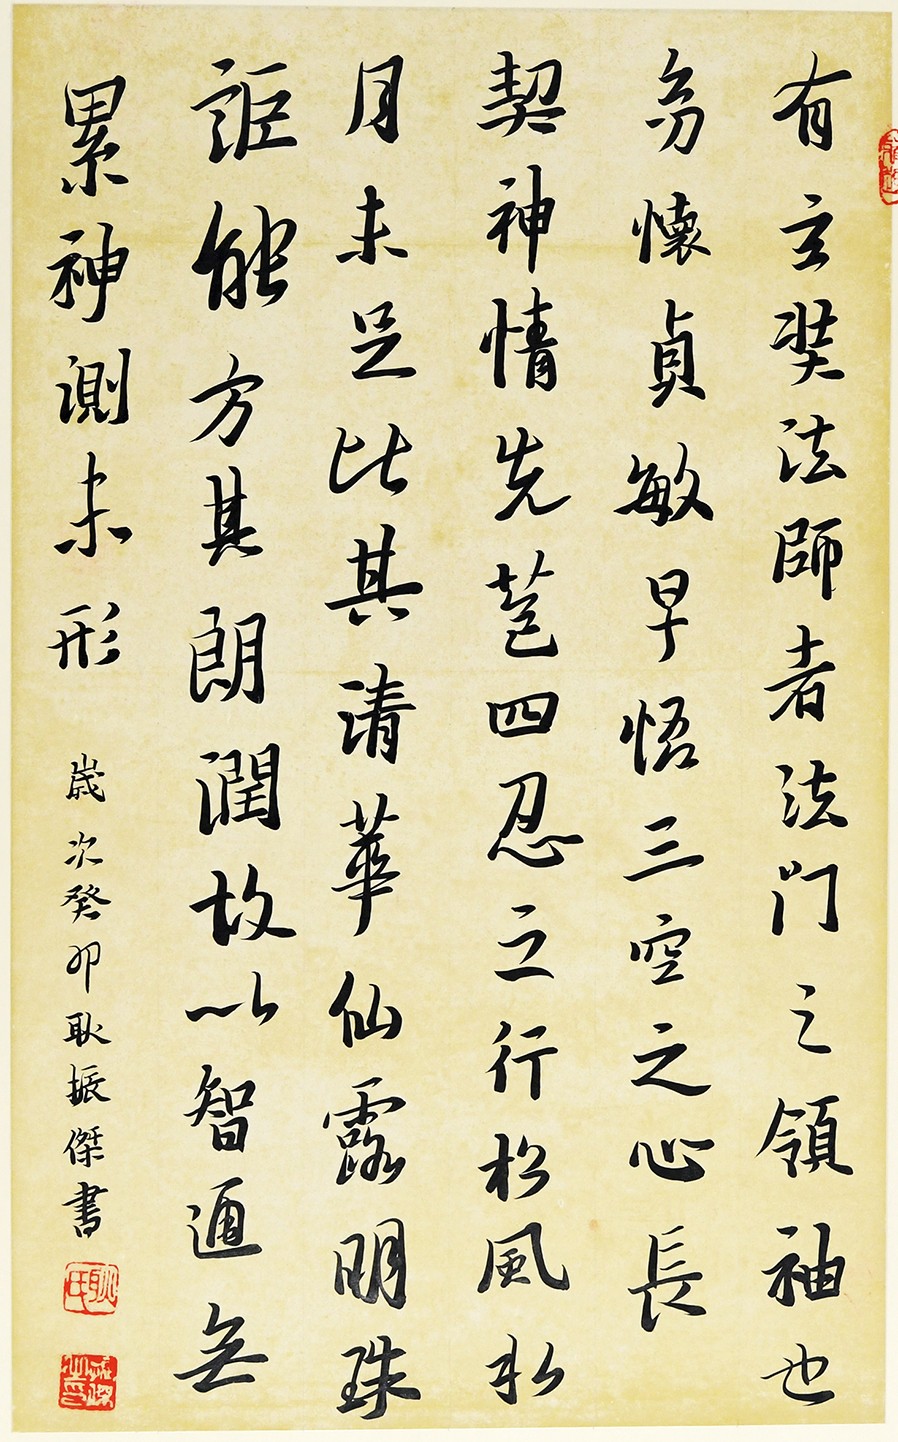 有玄奘法師者法門之領袖也
幼懷貞敏早悟三空之心長
契神情先苞四忍之行松風水
月未足比其清華仙露明珠
詎能方其朗潤故以智通無
累神測未形
歲次癸卯耿振傑書
耿氏
振傑之印